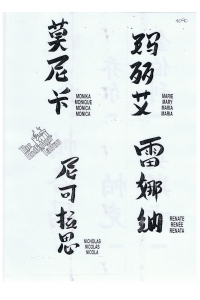 莫尼卡
MONIKA
MONIQUE
MONICA
MONICA
玛丽艾
MARIE
MARY
MARIA
MARIA
雷娜纳
RENATE
RENÉE
RENATA
尼可拉思
NICHOLAS
NICOLAS
NICOLA